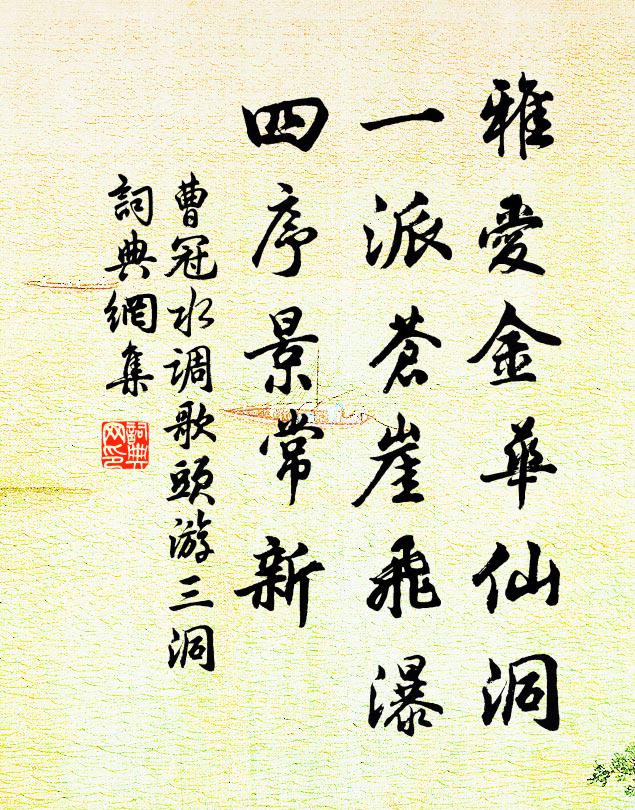 雅愛金華仙洞
一派蒼崖飛瀑
四序景常新
曹冠水调歌頭游三洞
詞典網集
詞典
网印